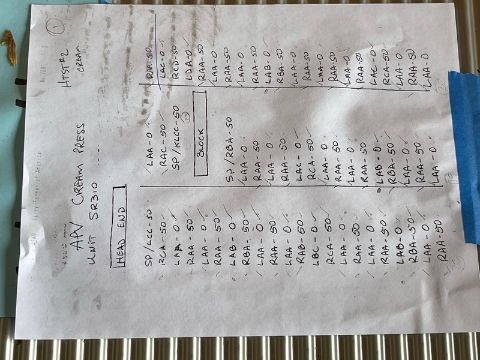 HTST#2
CREAM
APV CREAM PRESS
UNIT SR310
HEAD END
SP/LCC-50
RCA-50
LAA-0
RAA-50
LAA-0
RAA-50
LAB-0
RBA-50
LAA-0
RAA-50
LAA-0
RAB-50
LBC-0
RCA-50
LAA-0
RAA-50
LAA-0
RAA-50
LAB-0
RBA-50
LAA-0
RAA-50
LAA-0
RAC-50
SP/KLCC-50
BLOCK
SP/RBA-50
LAA-0
RAA-50
LAA-0
RAA-50
LAC-0
RCA-50
LAA-0
RAA-50
LAA-0
RAA-50
LAB-0
RBA-50
LAA-0
RAA-50
LAA-0
RAA-50
LAC-0
RCD-50
LDA-0
RAA-50
LAA-0
RAA-50
LAA-0
RAA-50
LAB-0
RBA-50
LAA-0
RAA-50
LAA-0
RAA-50
LAA-0
RAA-50
LAC-0
RCA-50
LAA-0
RAA-50
LAA-0